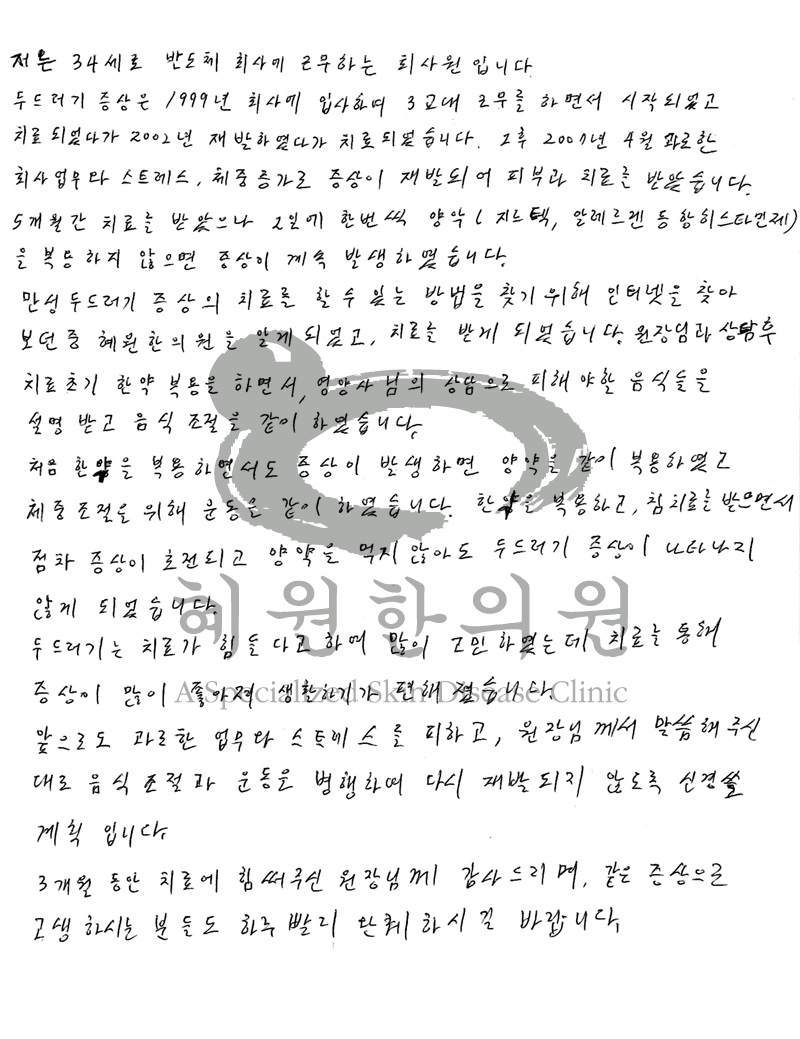 저는 34세로 반도체 회사에 근무하는 회사원 입니다.
두드러기 증상은 1999년 회사에 입사하며 3교대 근무를 하면서 시작되었고
치료 되었다가 2002년 재발하였다가 치료되었습니다. 그후 2007년 4월 과로한
회사업무와 스트레스, 체중증가로 증상이 재발되어 피부과 치료를 받았습니다.
5개월간 치료를 받았으나 2일에 한번씩 양약 (지드텍, 알레르겐 등 항히스타민제)
을 복용 하지 않으면 증상이 계속 발생하였습니다.
만성두드러기 증상의 치료를 할 수 있는 방법을 찾기 위해 인터넷을 찾아
보던중 혜원한의원을 알게 되었고, 치료를 받게 되었습니다. 원장님과 상담후
치료초기 한약 복용을 하면서, 영양사님의 상담으로 피해야할 음식들을
설명 받고 음식 조절을 같이 하였습니다.
처음 한약을 복용하면서도 증상이 발생하면 양약을 같이 복용하였고
체중조절을 위해 운동을 같이 하였습니다. 한약을 복용하고, 침치료를 받으면서
점차 증상이 호전되고 양약을 먹지 않아도 두드러기 증상이 나타나지
않게 되었습니다.
혜원한의원
두드러기는 치료가 힘들다고 하며 많이 고민하였는데 치료를 통해
증상이 많이 좋아져 생활하기가 편해졌습니다.
A Specialized Skin Disease Clinic
앞으로도 과로한 업무와 스트레스를 피하고, 원장님께서 말씀해주신
대로 음식조절과 운동을 병행하여 다시 재발되지 않도록 신경쓸
계획 입니다.
3개월 동안 치료에 힘써주신 원장님께 감사드리며, 같은 증상으로
고생 하시는 분들도 하루빨리 완쾌하시길 바랍니다.